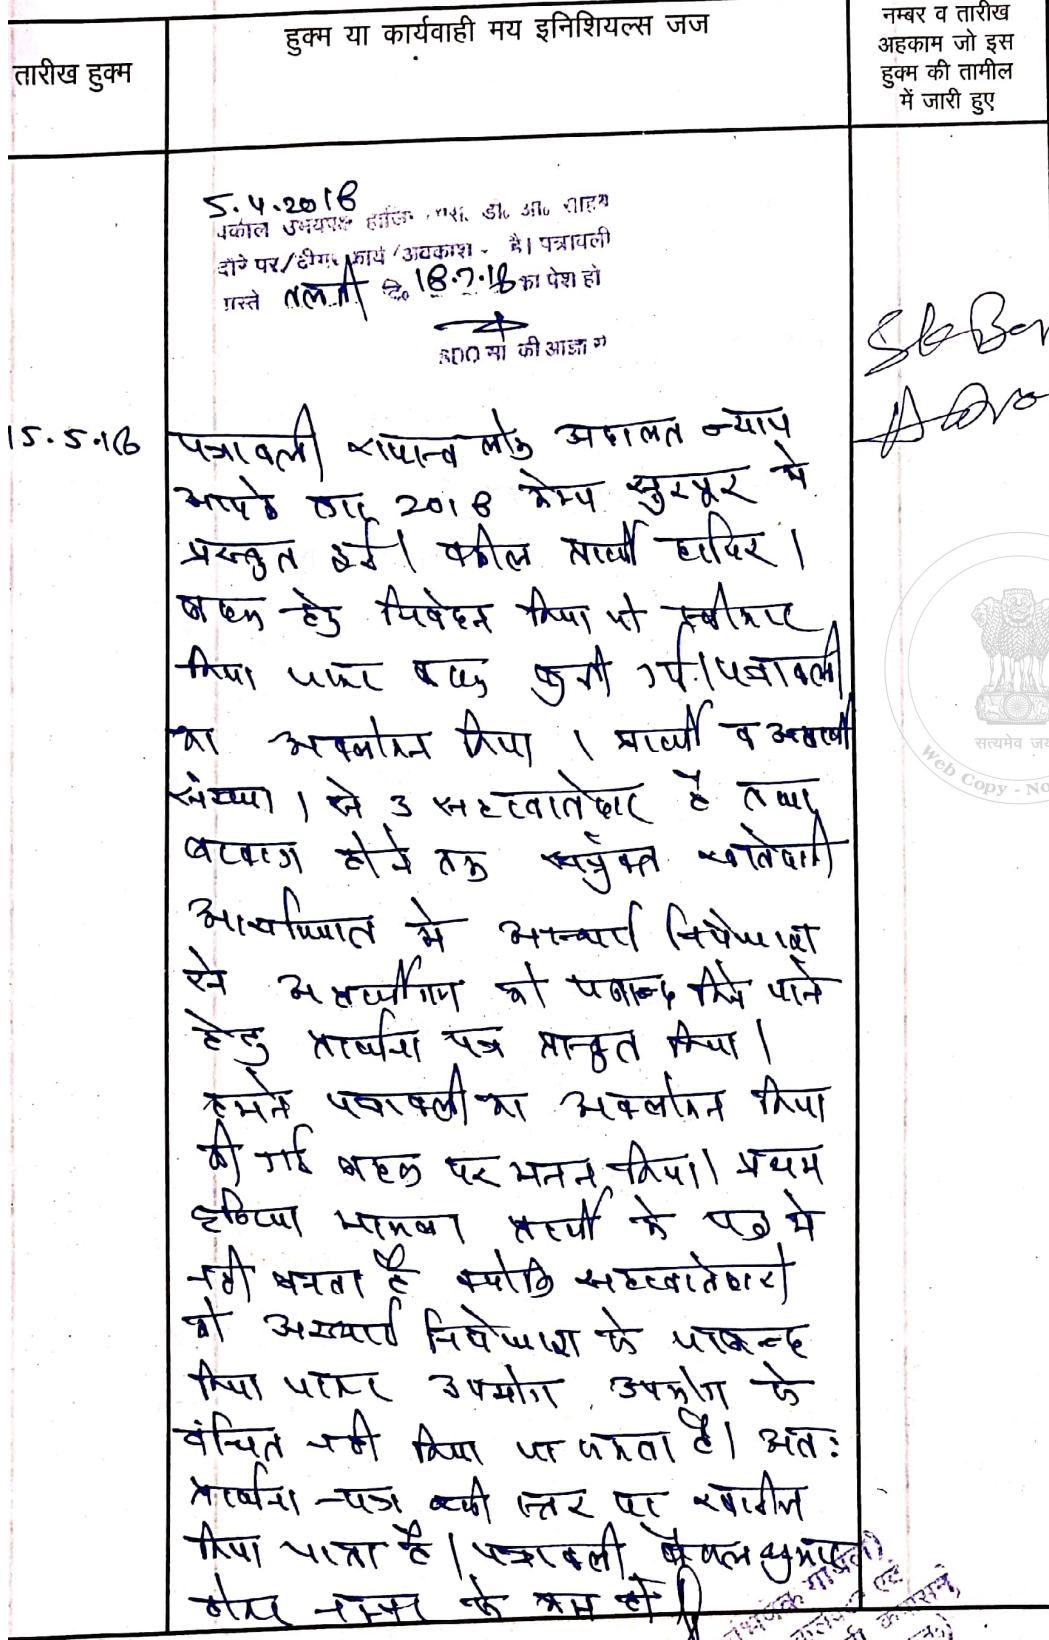 तारीख हुक्म
हुक्म या कार्यवाही मय इनिशियल्स जज
नम्बर व तारीख
अहकाम जो इस
हुक्म की तामील
में जारी हुए
5.4.2018
वकील उभयपक्ष हाजिर एस. डी. ओ. साहब
दौरे पर/टीगर कार्य/अवकाश - है। पत्रावली
वास्ते तलबी दि. 18.7.18 का पेश हो
SDO सा की आज्ञा से
15.5.18
पत्रावली राजस्व लोक अदालत न्याय
आपके द्वार 2018 केम्प सुरपुर में
प्रस्तुत हुई। वकील प्रार्थी हाजिर।
बहस हेतु निवेदन किया जो स्वीकार
किया जाकर बहस सुनी गई। पत्रावली
का अवलोकन किया। प्रार्थी व अप्रार्थी
संख्या 1 से 3 सहखातेदार है तथा
बटवारा होने तक संयुक्त खातेदारी
आराजियात में अस्थाई निषेधाज्ञा
से अप्रार्थीगण को पाबन्द किये जाने
हेतु प्रार्थना पत्र प्रस्तुत किया।
हमने पत्रावली का अवलोकन किया
की गई बहस पर मनन किया। प्रथम
दृष्टिया मामला प्रार्थी के पक्ष में
नही बनता है क्योंकि सहखातेदारों
को अस्थाई निषेधाज्ञा से पाबन्द
किया जाकर उपयोग उपभोग से
वंचित नही किया जा सकता है। अतः
प्रार्थना-पत्र इसी स्तर पर खारीज
किया जाता है। पत्रावली फैसल शुमार
होकर नम्बर से कम हो
सत्यमेव जय
Web Copy - No